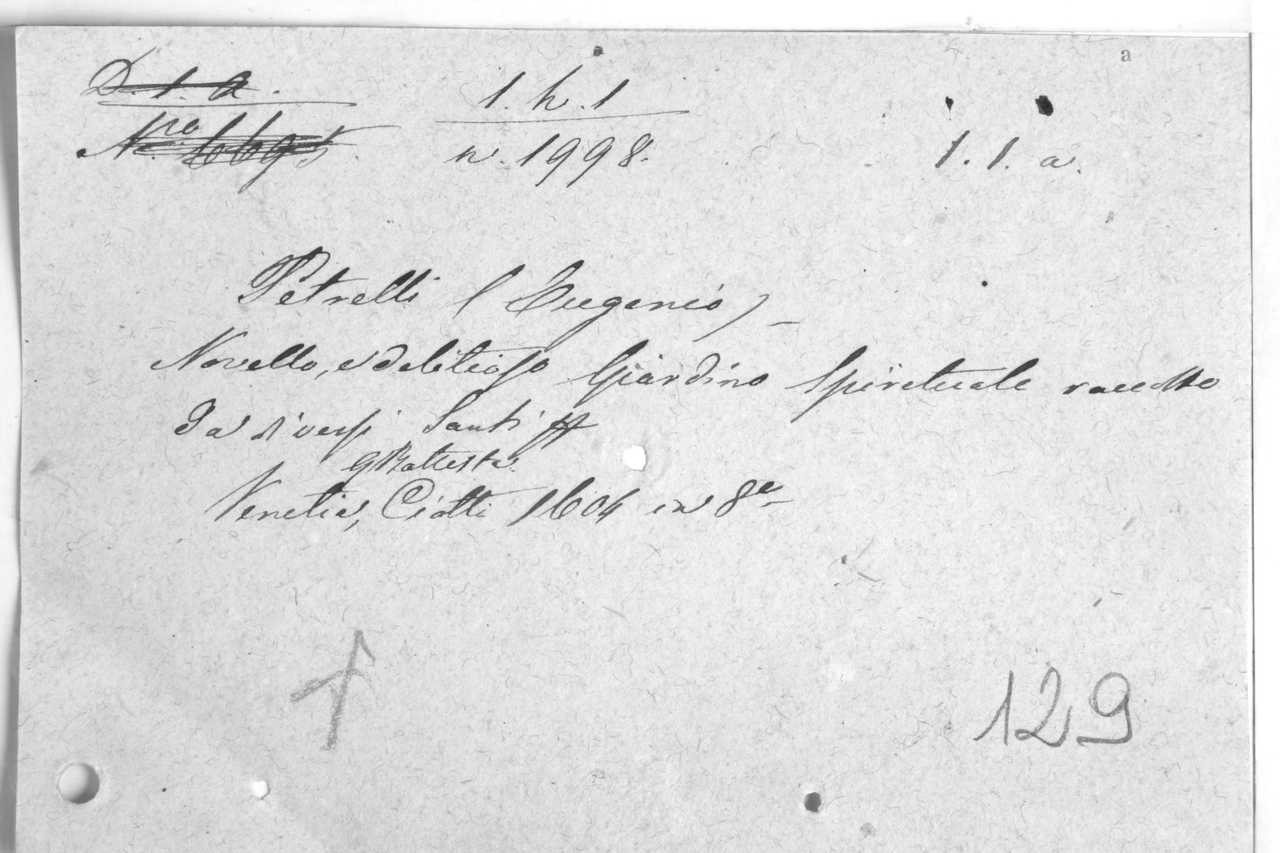 a
D. 1. a.
1. h. 1
Nro 6695.
n. 1998.
1. 1. a.
Petrelli (Eugenio)
Novello, e delitioso Giardino Spirituale racolto
Da diversi Santi
GBattista
Venetia, Ciotti 1604 in 8e
129